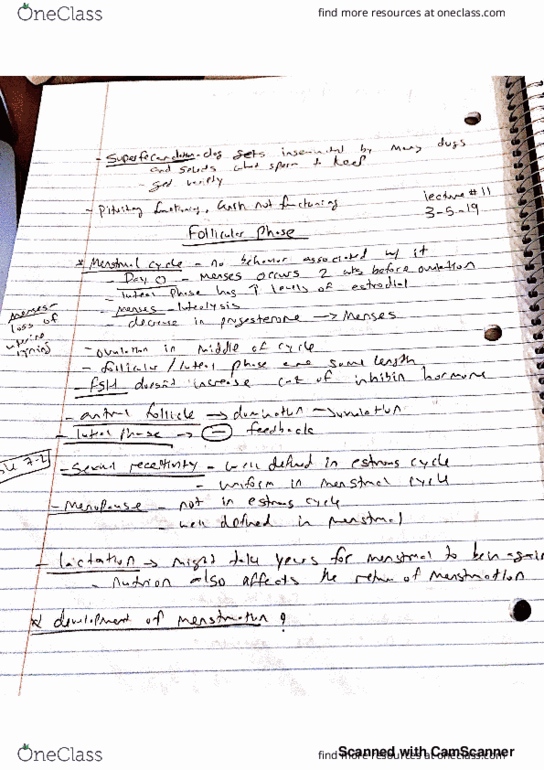 OneClass
find more resources at oneclass.com
- Superfecundation - dog gets inseminated by many dogs
and selects what sperm to keep
get variety
- Pituitary functioning, not functioning
lecture #11
3-5-19
Follicular Phase
* Menstrual cycle - no behavior associated w/ it
- Day 0 - menses occurs 2 wks before ovulation
- luteal phase has ↑ levels of estradiol
- menses - luteolysis
- decrease in progesterone → Menses
menses -
loss of
uterine
lining
- ovulation in middle of cycle
- follicular / luteal phase are same length
- FSH doesn't increase of inhibin hormone
- antral follicle → → ovulation
- luteal phase → (−) feedback
7-2
- Sexual receptivity - well defined in estrous cycle
- uniform in menstrual cycle
- Menopause - not in estrous cycle
- well defined in menstrual
- lactation → might take years for menstrual to begin again
- also affects the return of menstruation
* development of menstruation ?
Scanned with CamScanner
OneClass
find more resources at oneclass.com